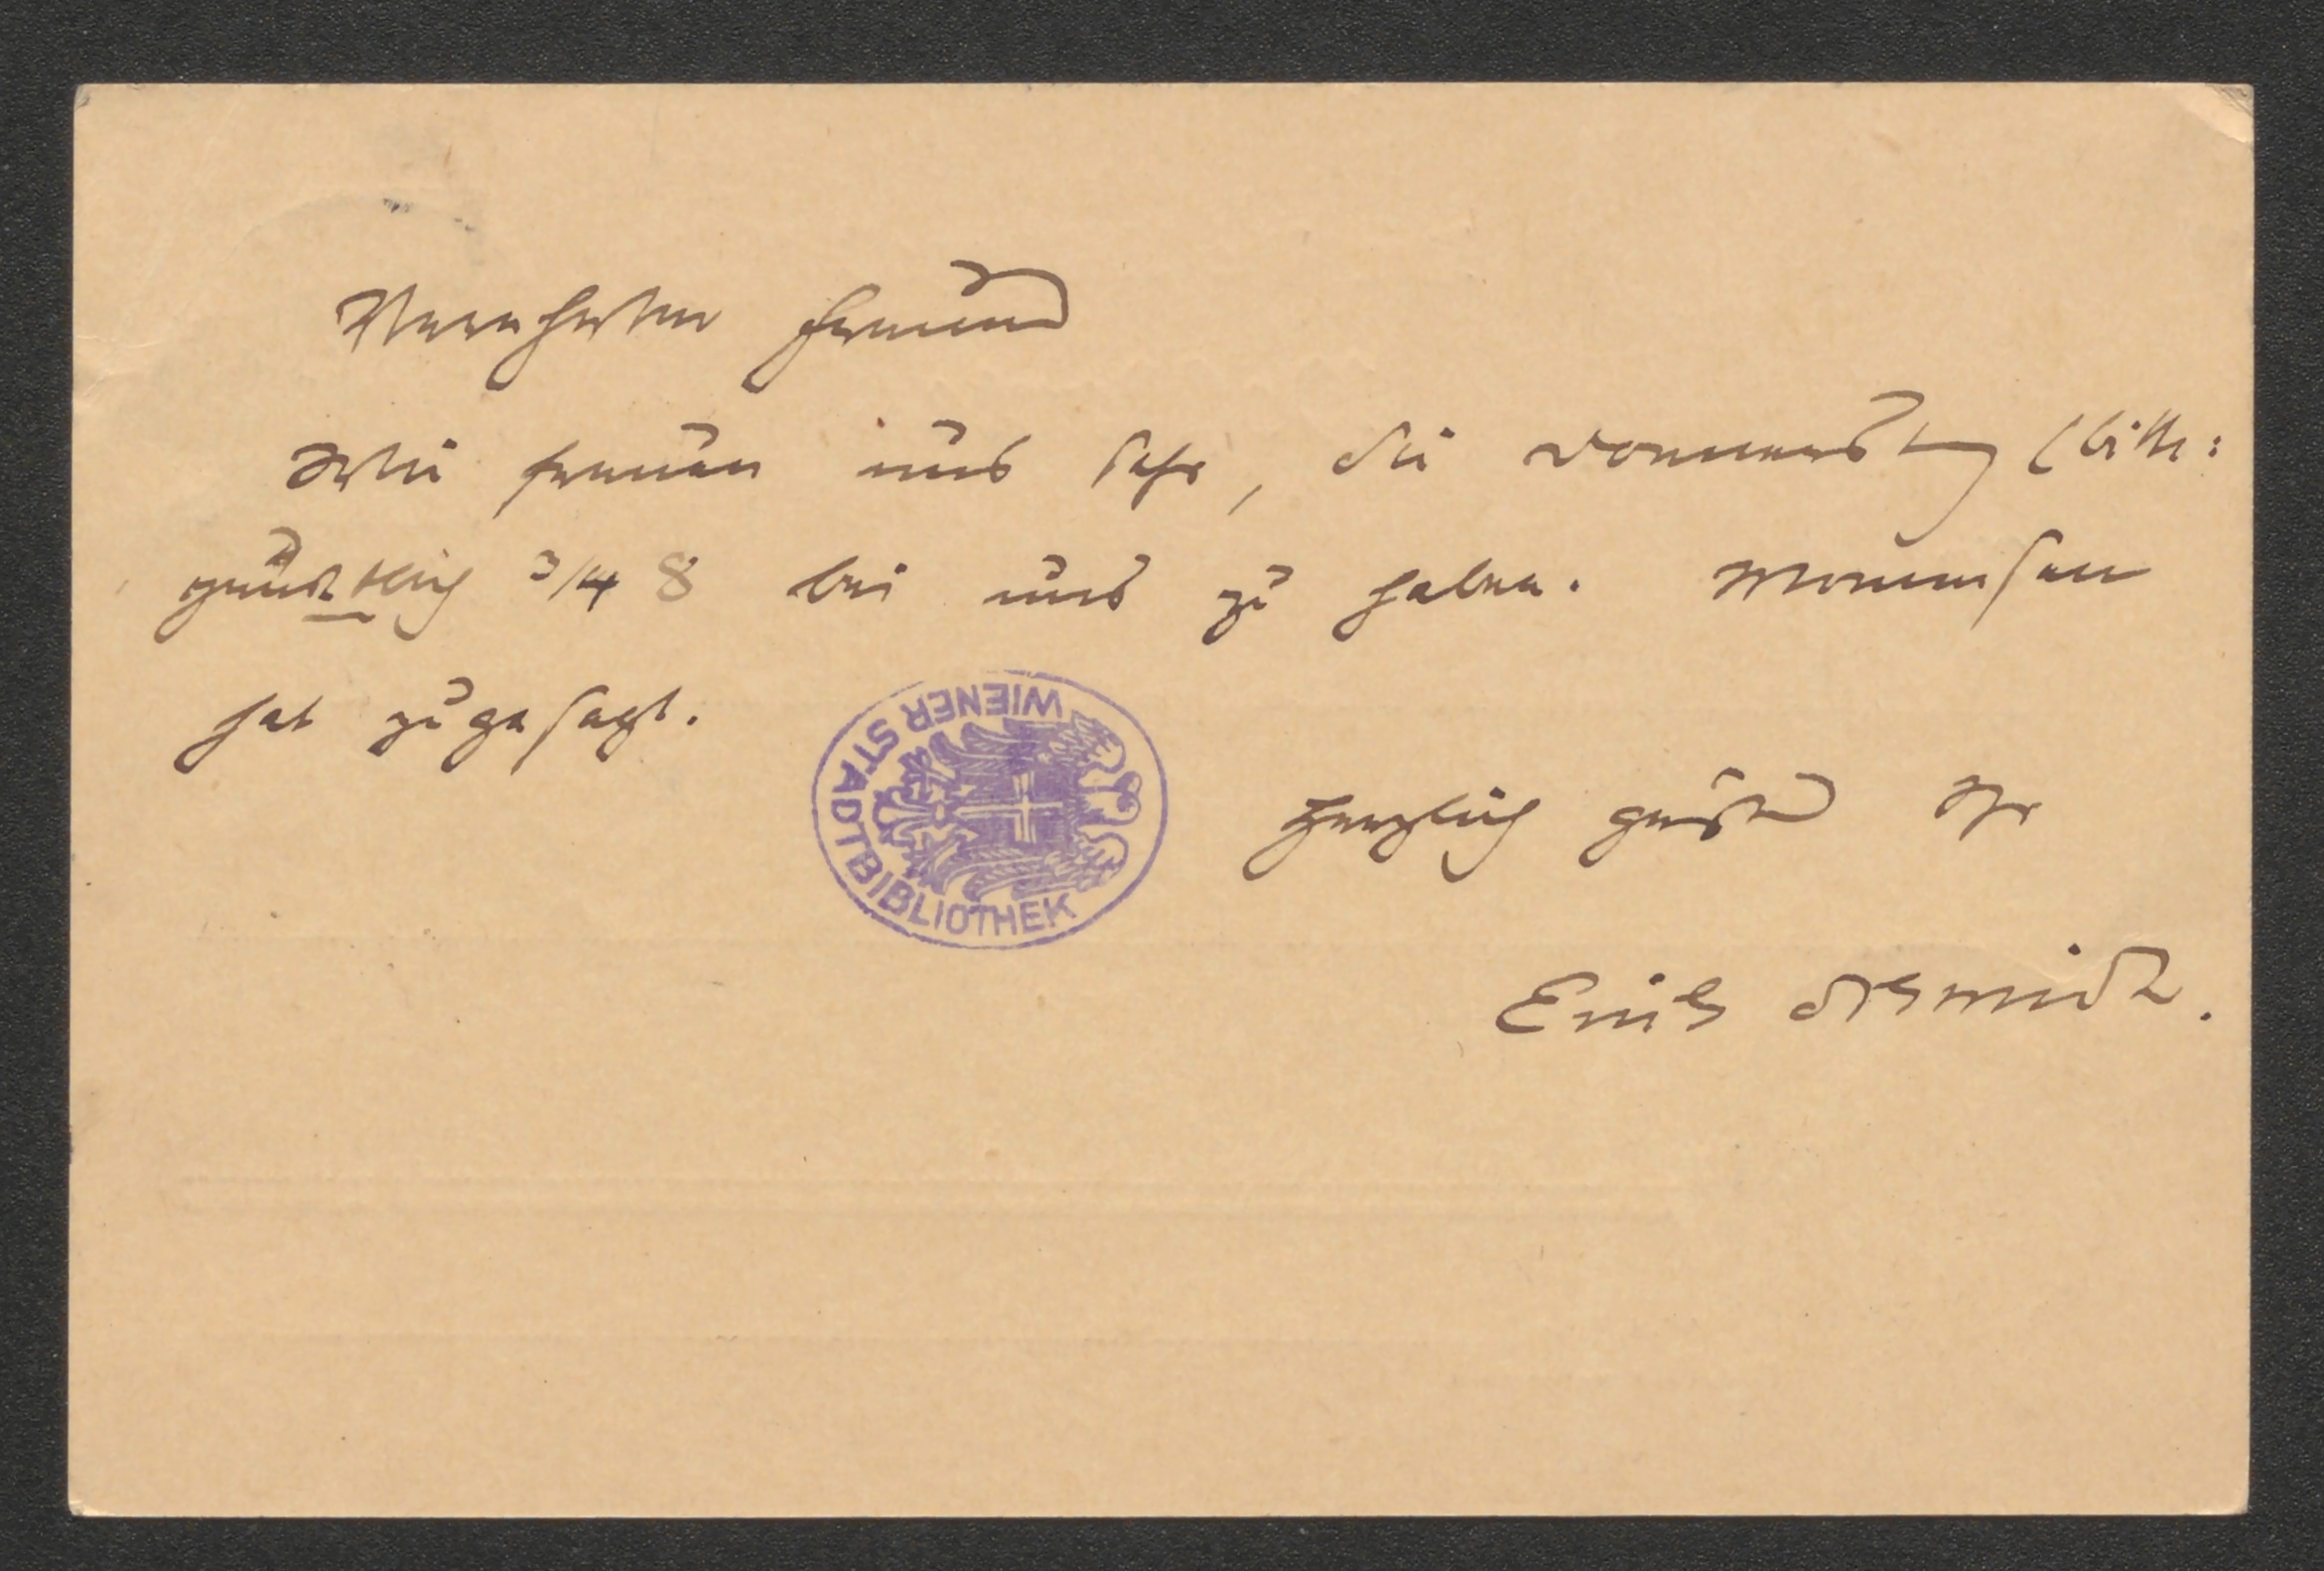 Verehrter Freund
Wir freuen uns sehr, Sie Donnerstag (bitte:
pünktlich 3/4 8 bei uns zu haben. Mommsen
hat zugesagt.
WIENER STADTBIBLIOTHEK
Herzlich grüßend Ihr
Erich Schmidt.